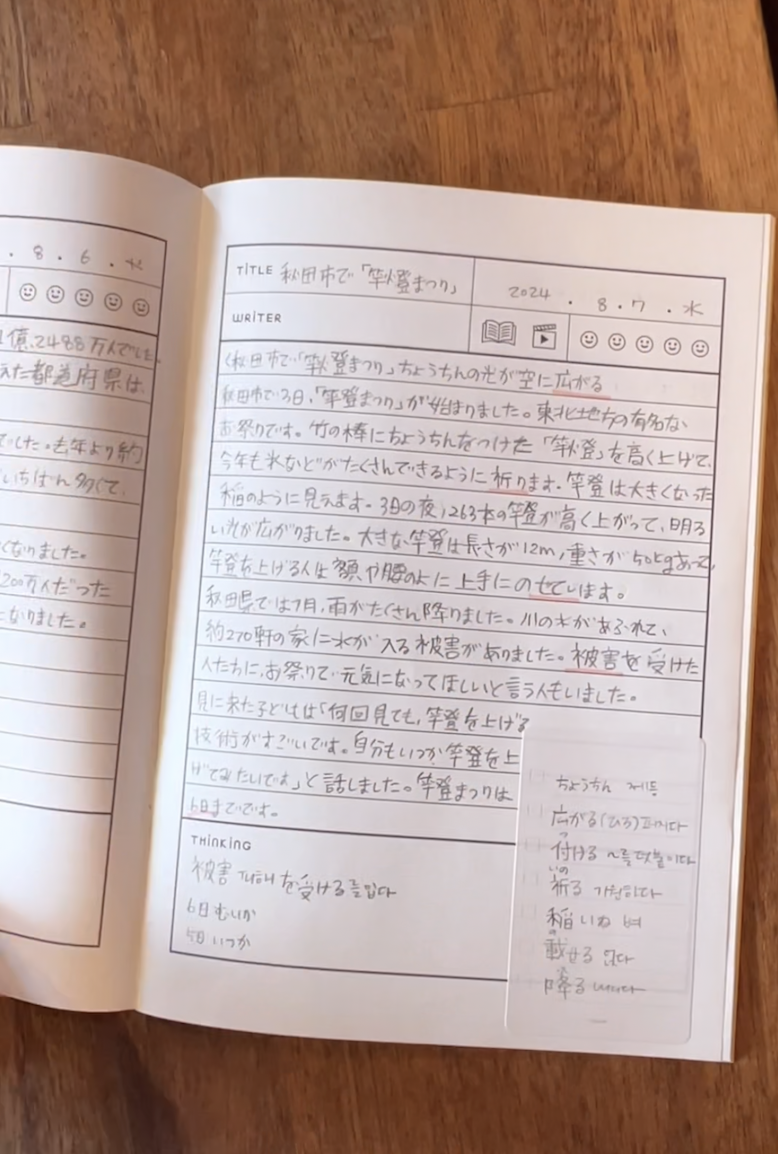 8 . 6 . 火
1億2488万人でした
た都道府県は、
でした。去年より約
いちばん多くて、
くなりました。
200万人だった
になりました。
TiTLE 秋田市で「竿燈まつり」
2024 . 8 . 7 . 水
WRiTER
秋田市で「竿燈まつり」ちょうちんの光が空に広がる
秋田市で3日、「竿燈まつり」が始まりました。東北地方の有名な
お祭りです。竹の棒にちょうちんをつけた「竿燈」を高く上げて、
今年も米などがたくさんできるように祈ります。竿燈は大きくなった
稲のように見えます。3日の夜、263本の竿燈が高く上がって、明る
い光が広がりました。大きな竿燈は長さが12m、重さが50kgあって、
竿燈を上げる人は額や腰のよに上手にのせています。
秋田県では7月、雨がたくさん降りました。川の水があふれて、
約270軒の家に水が入る被害がありました。被害を受けた
人たちに、お祭りで元気になってほしいと言う人もいました。
見に来た子どもは「何回見ても、竿燈を上げる
技術がすごいです。自分もいつか竿燈を上
げてみたいです」と話しました。竿燈まつりは
6日までです。
THiNKiNG
被害 피해 を受ける를입다
6日むいか
5日いつか
ちょうちん 제등
広がる(ひろ)퍼지다
つ
付ける ~를더높이다
いの
祈る 기원하다
稲 いね 벼
の
載せる 얹다
ふ
降る 내리다